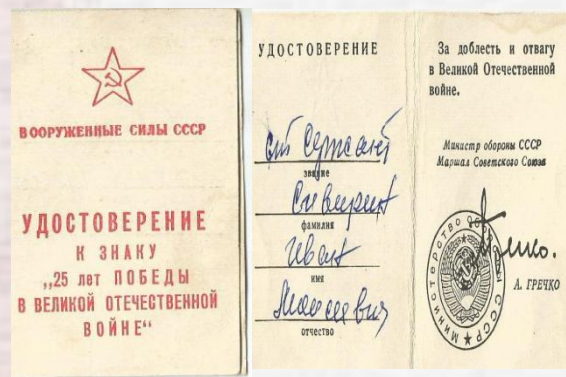 ВООРУЖЕННЫЕ СИЛЫ СССР
УДОСТОВЕРЕНИЕ
К ЗНАКУ
„25 лет ПОБЕДЫ
В ВЕЛИКОЙ ОТЕЧЕСТВЕННОЙ
ВОЙНЕ“
УДОСТОВЕРЕНИЕ
сержант
звание
фамилия
Иван
имя
Моисеевич
отчество
За доблесть и отвагу
в Великой Отечественной
войне.
Министр обороны СССР
Маршал Советского Союза
А. ГРЕЧКО